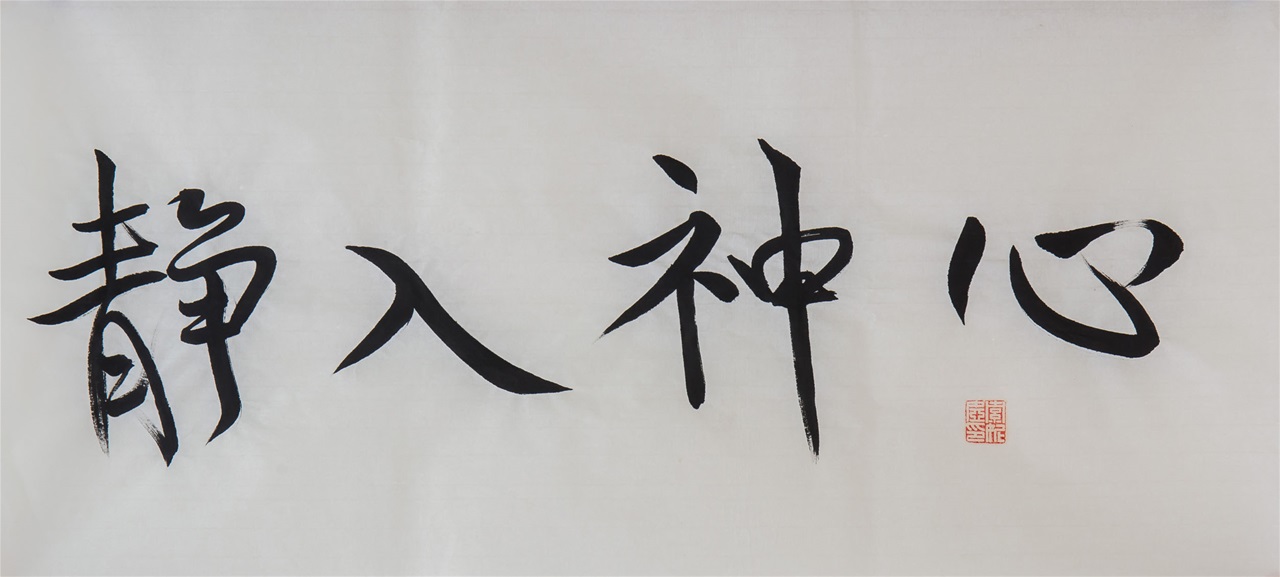 心神入静